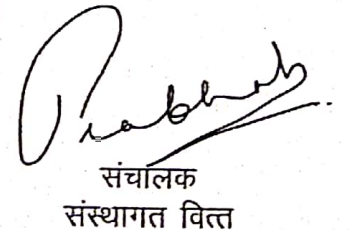 Prabhat
संचालक
संस्थागत वित्त